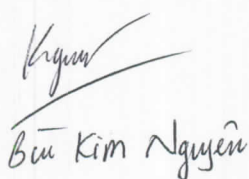 Bùi Kim Nguyên